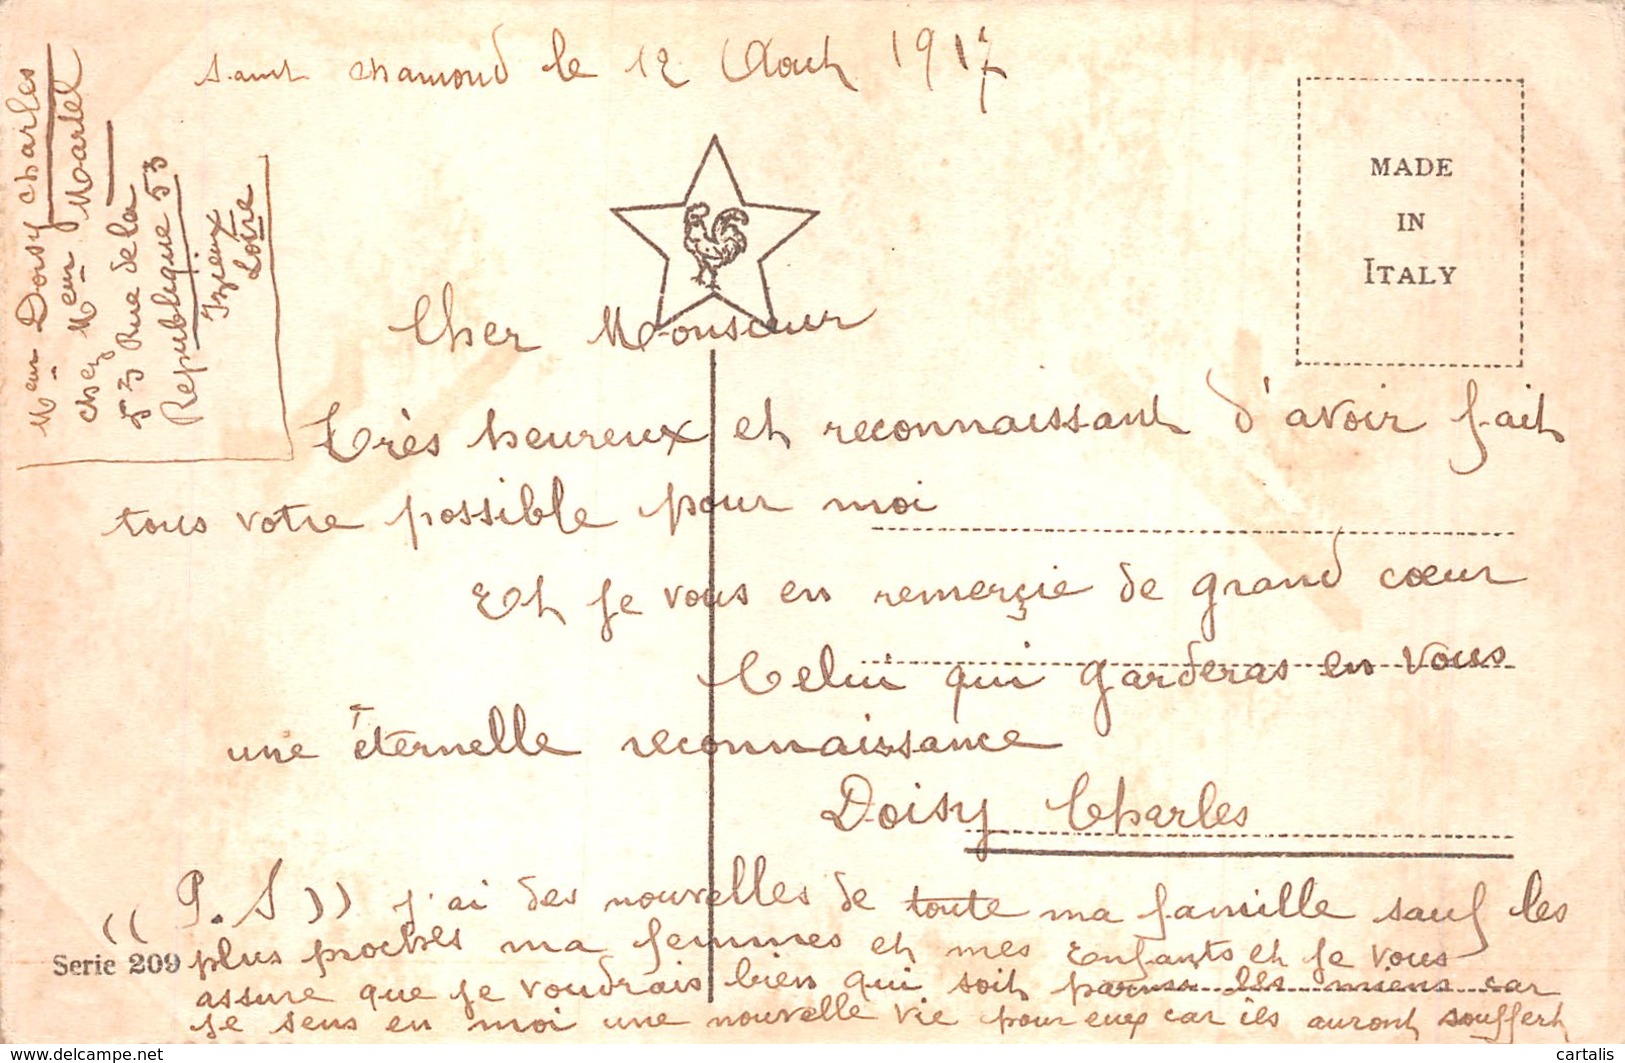 Saint chamond le 12 Aout 1917
Meur Doisy charles
chez Meur Martel
53 Rue de la
Republique 53
Izieux
Loire
MADE
IN
ITALY
Cher Monsieur
très heureux et reconnaissant d'avoir fait
tous votre possible pour moi
Et je vous en remerçie de grand cœur
Celui qui garderas en vous
une éternelle reconnaissance
Doisy Charles
((P.S)) j'ai des nouvelles de toute ma famille sauf les
plus proches ma femmes et mes Enfants et je vous
assure que je voudrais bien qui soit parmi les miens car
je sens en moi une nouvelle vie pour eux car ils auront souffert
Serie 209
cartalis
www.delcampe.net